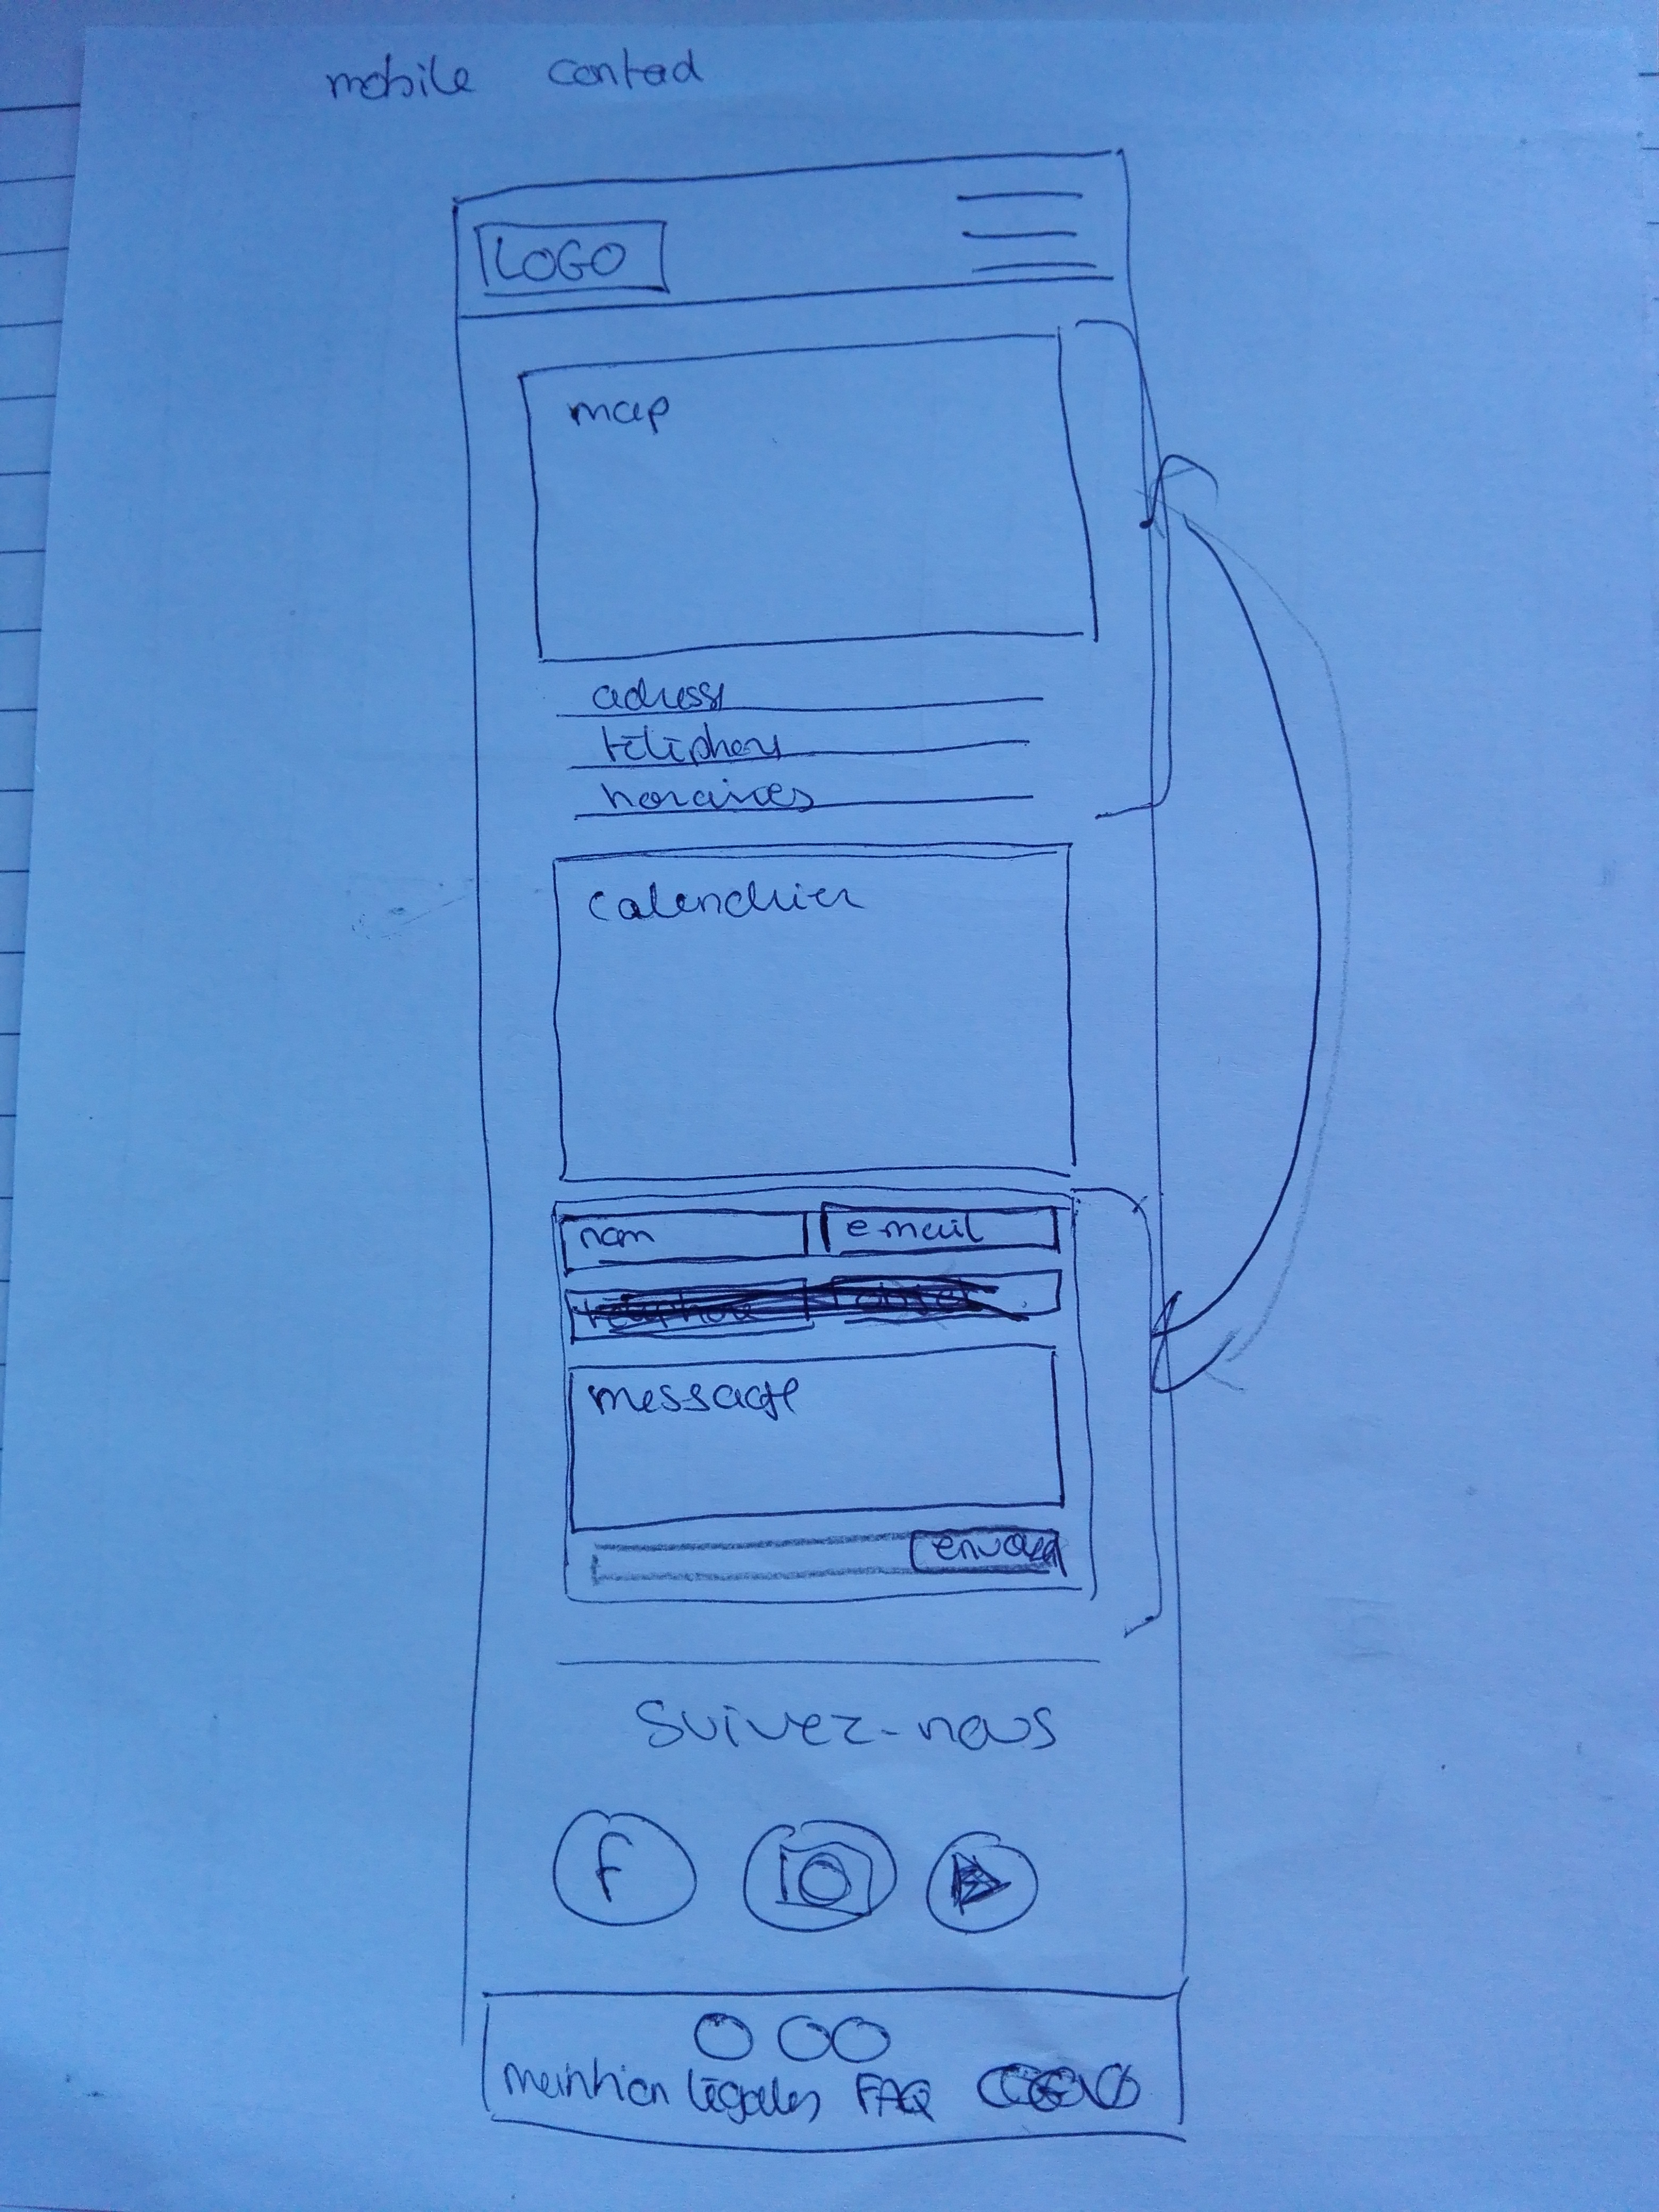 mobile contad
LOGO
map
adresse
téléphone
horaires
calendrier
nom e mail
téléphone objet
message
envoyer
Suivez-nous
f
meintion légales FAQ CGV